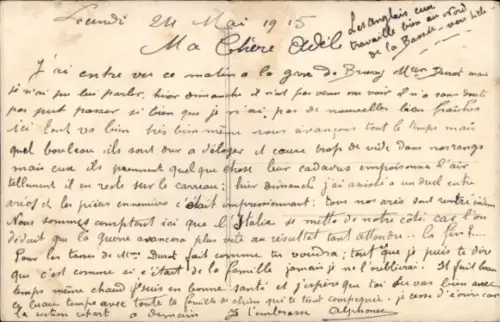 Lundi 24 Mai 1915
Ma Chère Adèl
Les anglais eux
travaille bien au Nord
de la Bassée vers Lile
J'ai entre vu ce matin a la gare de Mur Durot mais
je n'ai pu lui parler, hier dimanche il n'est pas venu me voir il n'a sans doute
pas put passer si bien que je n'ai pas de nouvelles bien fraîches
ici tout va bien très bien même nous avançons tout le temps mais
quel bouleau ils sont dur a déloger et cause trop de vide dans nos rangs
mais eux ils prennent quelque chose leur cadavres empoisonne l'air
tellement il en reste sur le carreau; hier dimanche j'ai assisté a un duel entre
avions et les pièces ennemies c'était impressionnant: tous nos aviés sont rentré indemnes
Nous sommes comptant ici que l'Italie se mette de notre côté car l'on
déduit que la guerre avancera plus vite au résultat tant attendu. la fin!...
Pour les tasses de Mme Durot fait comme tu voudra; tout que je puis te dire
que c'est comme si c'était de la famille jamais je ne l'oublierai. Il fait beau
temps même chaud j'suis en bonne santé et j'espère que toi tu vas bien avec
ce beau temps avec toute ta famille de chien qui te tient compagnie. je cesse d'écrire car
la section repart a demain Je t'embrasse Alphonse